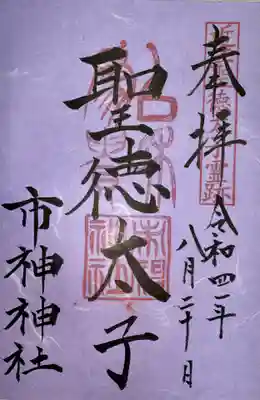 奉拝
令和四年
八月二十日
聖徳太子
市神神社